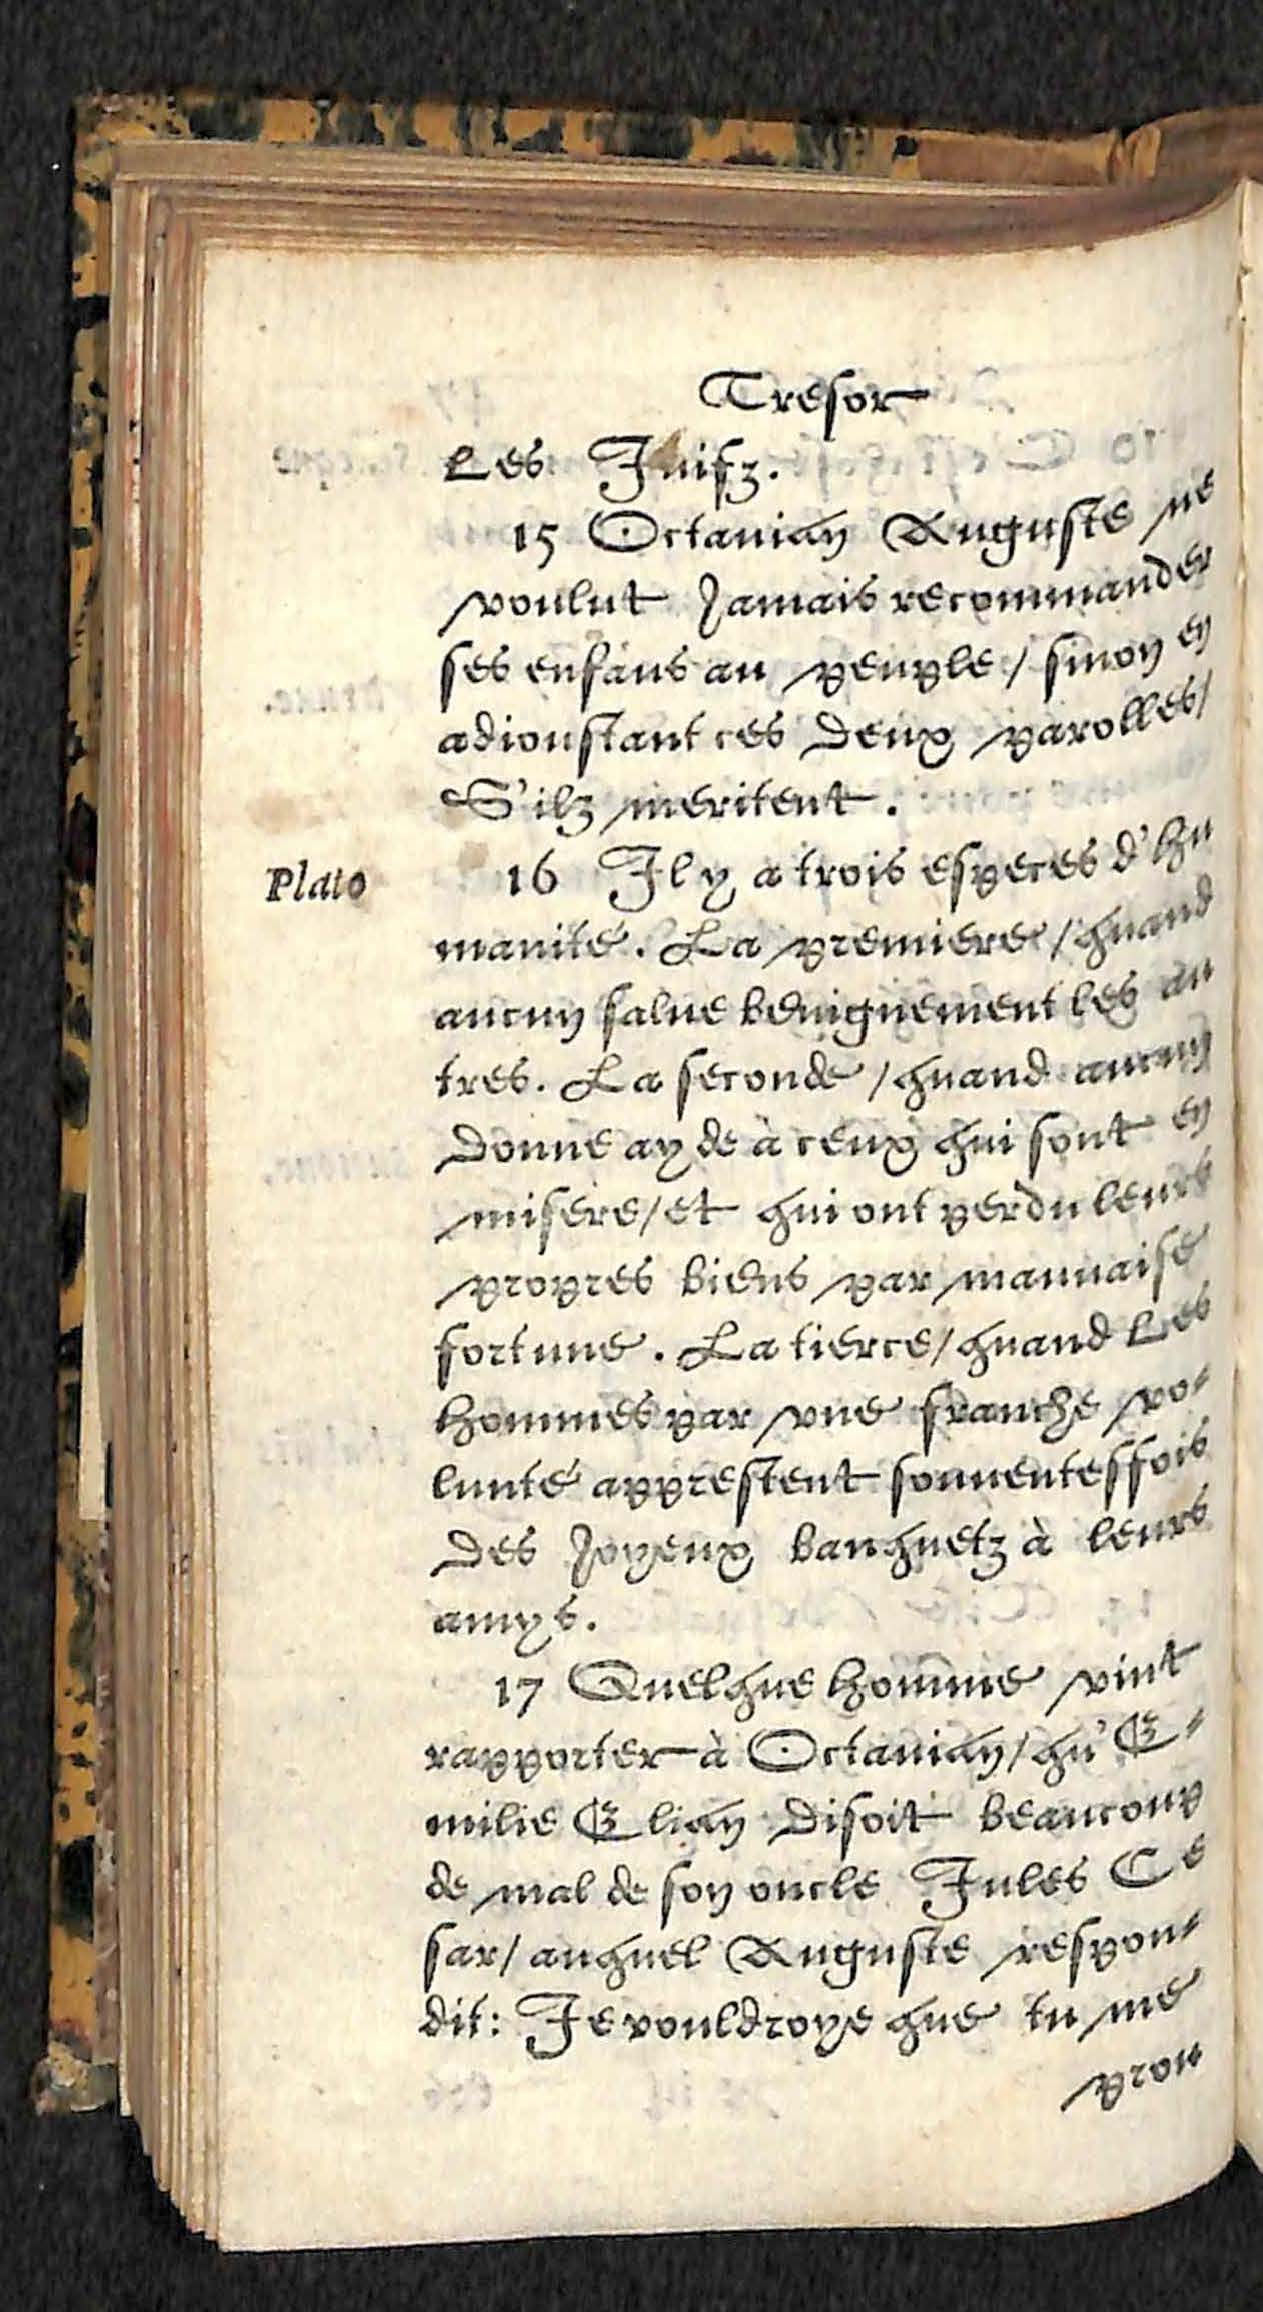 Tresor
Les Juifz.
15 Octauian Auguste ne
voulut jamais recommander
ses enfans au peuple / sinon en
adioustant ces deux parolles /
S'ilz meritent.
Plato
16 Il y a trois especes d'hu
manité. La premiere / quand
aucun salue benignement les au
tres. La seconde / quand aucun
donne ayde à ceux qui sont en
misere / et qui ont perdu leurs
propres biens par mauuaise
fortune. La tierce / quand les
hommes par vne franche vo-
lunté apprestent souuenteffois
des joyeux banquetz à leurs
amys.
17 Quelque homme vint
rapporter à Octauian / qu'E-
milie Elian disoit beaucoup
de mal de son oncle Jules Ce
sar / auquel Auguste respon-
dit: Je vouldroye que tu me
prou